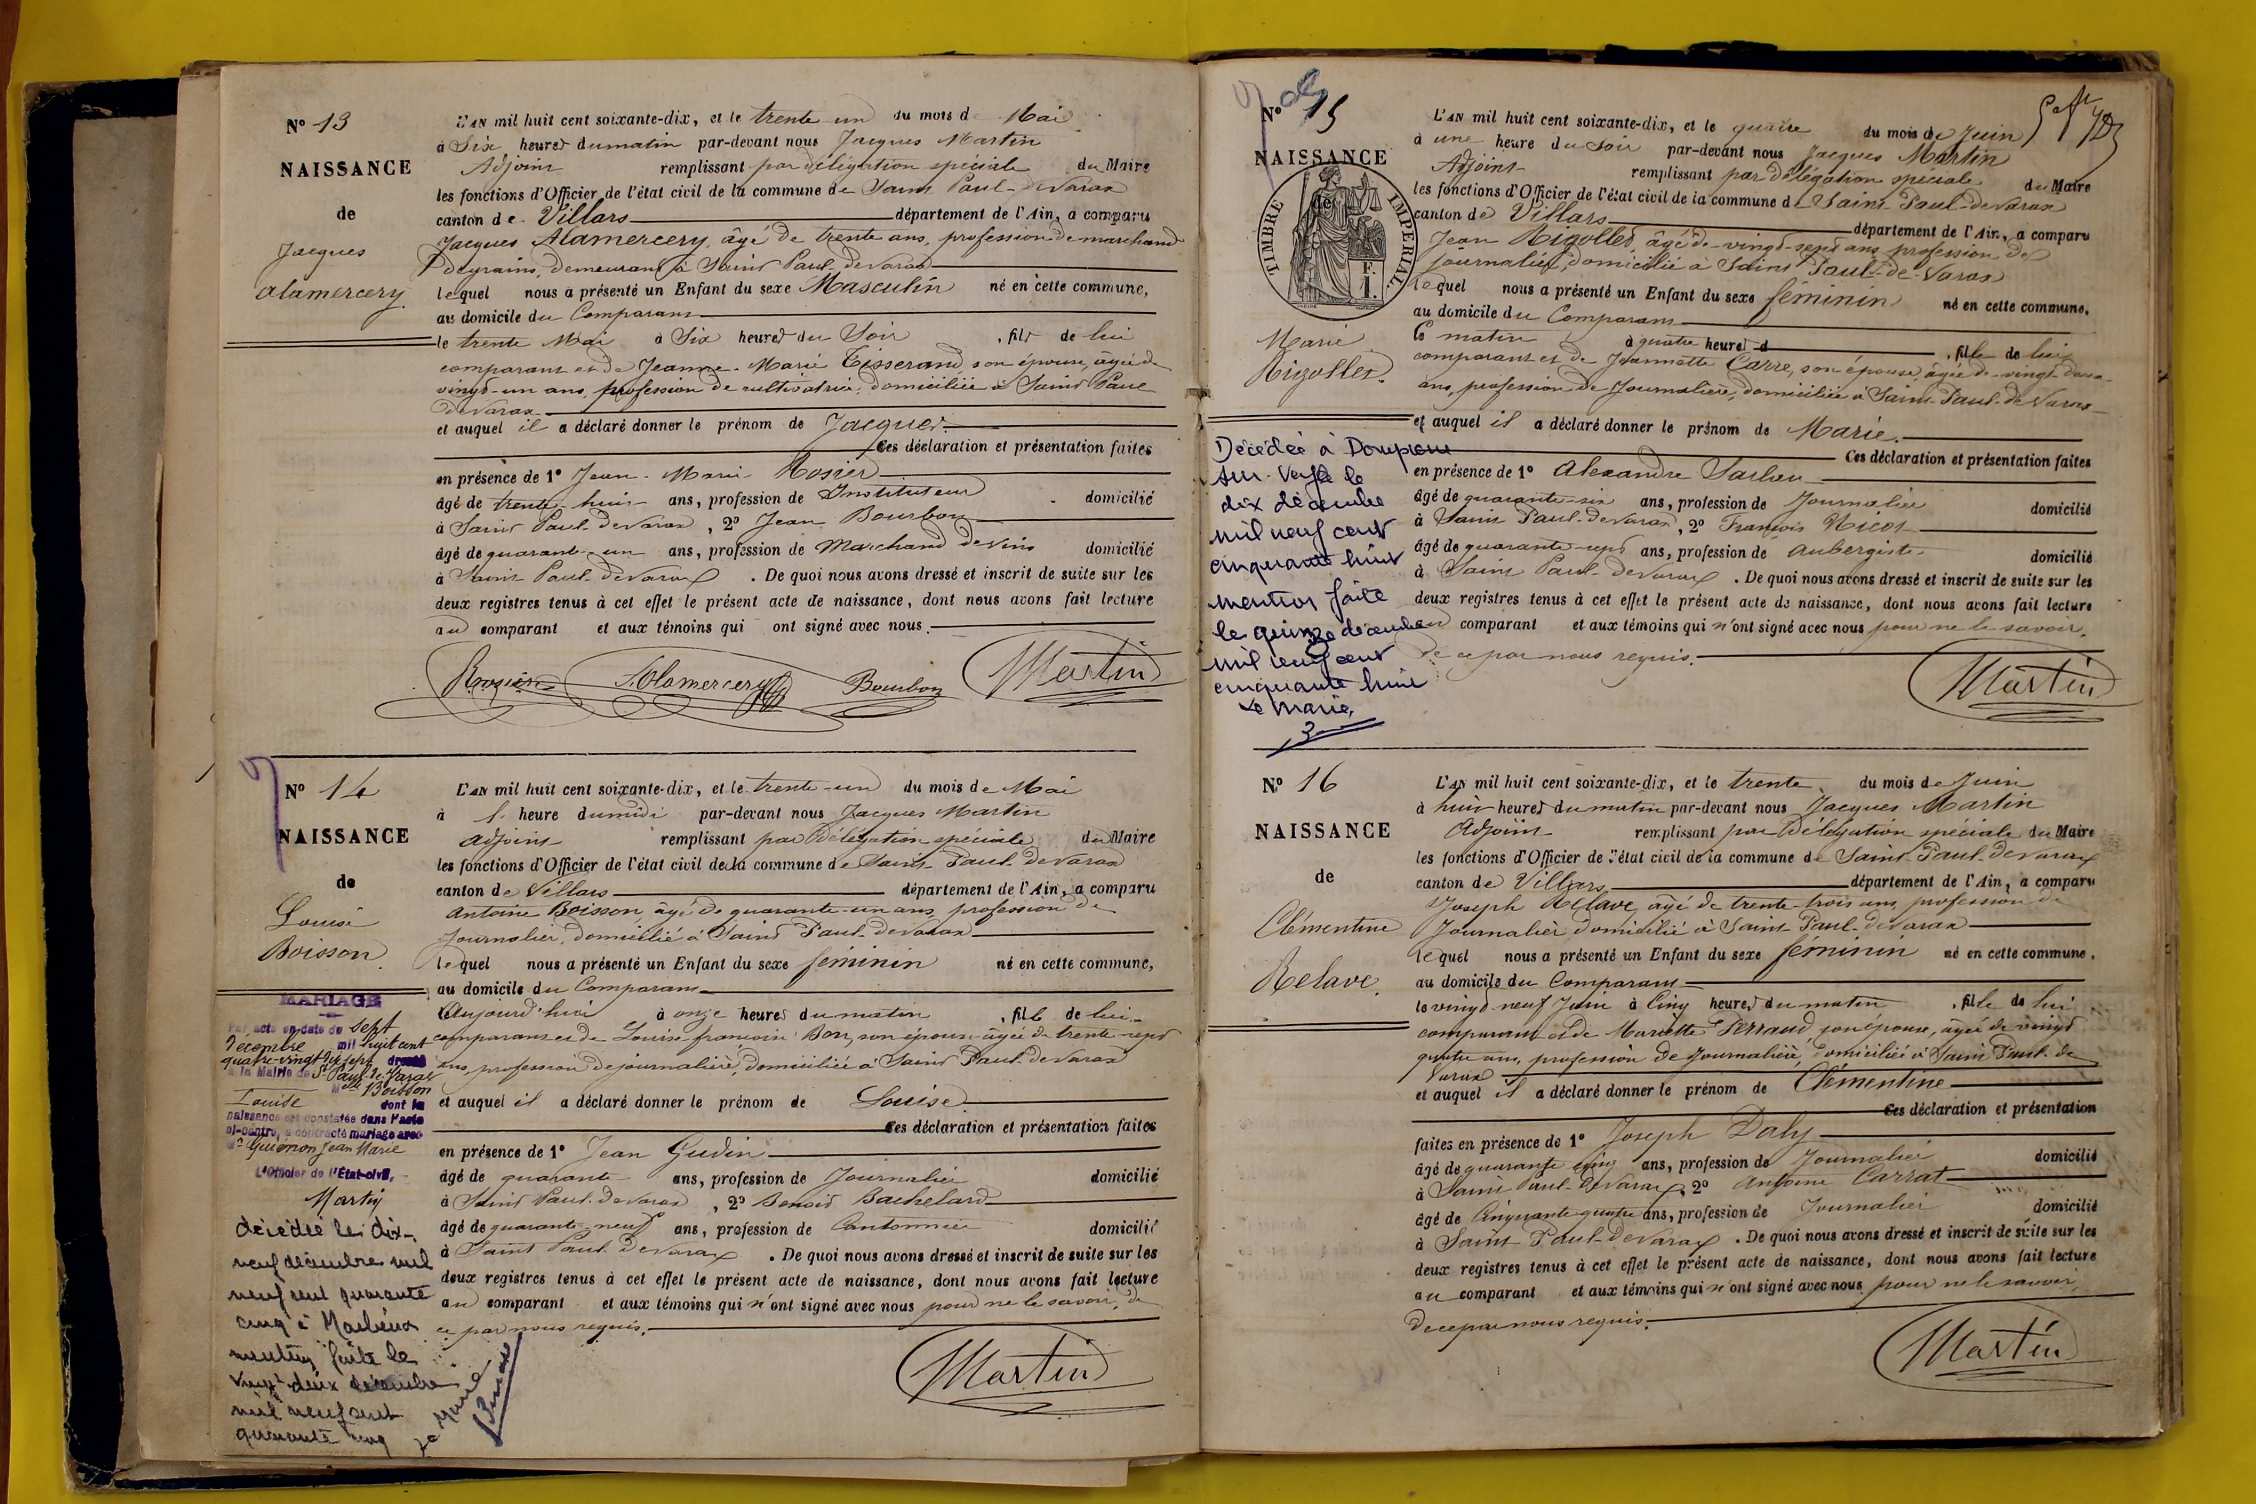 Nº 13
NAISSANCE
de
Jacques
Alamercery.
L'AN mil huit cent soixante-dix, et le trente un du mois de Mai
à Six heures du matin par-devant nous Jacques Martin
Adjoint remplissant par délégation spéciale du Maire
les fonctions d'Officier de l'état civil de la commune de Saint Paul-de Varax
canton de Villars département de l'Ain, a comparu
Jacques Alamercery, âgé de trente ans, profession de marchand
de grains, demeurant à Saint Paul-de Varax
lequel nous a présenté un Enfant du sexe Masculin né en cette commune,
au domicile du Comparant
le trente Mai à Six heures du Soir, fils de lui
comparant et de Jeanne-Marie Tisserand, son épouse, âgée de
vingt-un ans, profession de cultivatrice, domiciliée à Saint Paul
de Varax
et auquel il a déclaré donner le prénom de Jacques.
Ces déclaration et présentation faites
en présence de 1º Jean-Marie Rosier
âgé de trente-huit ans, profession de Instituteur domicilié
à Saint Paul-de Varax, 2º Jean Bourbon
âgé de quarante-un ans, profession de Marchand de vins domicilié
à Saint Paul-de Varax. De quoi nous avons dressé et inscrit de suite sur les
deux registres tenus à cet effet le présent acte de naissance, dont nous avons fait lecture
au comparant et aux témoins qui ont signé avec nous.
Rosier Alamercery Bourbon Martin
Nº 14
NAISSANCE
de
Louise
Boisson.
L'AN mil huit cent soixante-dix, et le trente-un du mois de Mai
à heure du midi par-devant nous Jacques Martin
Adjoint remplissant par délégation spéciale du Maire
les fonctions d'Officier de l'état civil de la commune de Saint-Paul-de Varax
canton de Villars département de l'Ain, a comparu
Antoine Boisson, âgé de quarante-un ans, profession de
Journalier, domicilié à Saint Paul-de Varax
lequel nous a présenté un Enfant du sexe féminin né en cette commune,
au domicile du Comparant
Aujourd'hui à onze heures du matin, fille de lui
comparant et de Louise françoise Bon, son épouse âgée de trente-sept
ans, profession de journalière, domiciliée à Saint Paul-de Varax
et auquel il a déclaré donner le prénom de Louise.
Ces déclaration et présentation faites
en présence de 1º Jean Gudin
âgé de quarante ans, profession de Journalier domicilié
à Saint Paul-de Varax, 2º Benoit Bachelard
âgé de quarante-neuf ans, profession de Cantonnier domicilié
à Saint Paul-de Varax. De quoi nous avons dressé et inscrit de suite sur les
deux registres tenus à cet effet le présent acte de naissance, dont nous avons fait lecture
au comparant et aux témoins qui n'ont signé avec nous pour ne le savoir, de
ce par nous requis.
Martin
MARIAGE
Par acte en date du Sept
Décembre mil huit cent
quatre-vingt dix sept dressé
à la Mairie de St Paul-de-Varax
Melle Boisson
Louise dont la
naissance est constatée dans l'acte
ci-contre, a contracté mariage avec
Mr Guionon Jean Marie
L'Officier de l'État-civil,
Martin
décédée le dix-
neuf décembre mil
neuf cent quarante
cinq à Marlieux
mention faite le
vingt deux décembre
mil neuf cent
quarante cinq
Le Maire
Nº 15
NAISSANCE
de
TIMBRE IMPERIAL
F.
1.
Marie
Rigollet.
L'AN mil huit cent soixante-dix, et le quatre du mois de Juin
à une heure du soir par-devant nous Jacques Martin
Adjoint remplissant par délégation spéciale du Maire
les fonctions d'Officier de l'état civil de la commune de Saint-Paul-de Varax
canton de Villars département de l'Ain, a comparu
Jean Rigollet, âgé de vingt-sept ans, profession de
journalier, domicilié à Saint Paul-de-Varax
lequel nous a présenté un Enfant du sexe féminin né en cette commune,
au domicile du Comparant
Ce matin à quatre heures d, fille de lui
comparant et de Jeannette Carre, son épouse, âgée de vingt-deux
ans, profession de Journalière, domiciliée à Saint-Paul-de Varax
et auquel il a déclaré donner le prénom de Marie.
Ces déclaration et présentation faites
en présence de 1º Alexandre
âgé de quarante-six ans, profession de Journalier domicilié
à Saint Paul-de Varax, 2º François Nicot
âgé de quarante-sept ans, profession de Aubergiste domicilié
à Saint Paul-de Varax. De quoi nous avons dressé et inscrit de suite sur les
deux registres tenus à cet effet le présent acte de naissance, dont nous avons fait lecture
au comparant et aux témoins qui n'ont signé avec nous pour ne le savoir,
de ce par nous requis.
Martin
Décédée à Dompierre
sur-Veyle le
dix décembre
mil neuf cent
cinquante huit
mention faite
le quinze décembre
mil neuf cent
cinquante huit
Le Maire,
Nº 16
NAISSANCE
de
Clémentine
Relave.
L'AN mil huit cent soixante-dix, et le trente du mois de Juin
à huit heures du matin par-devant nous Jacques Martin
Adjoint remplissant par délégation spéciale du Maire
les fonctions d'Officier de l'état civil de la commune de Saint-Paul-de Varax
canton de Villars département de l'Ain, a comparu
Joseph Relave, âgé de trente-trois ans, profession de
Journalier domicilié à Saint Paul-de Varax
lequel nous a présenté un Enfant du sexe féminin né en cette commune,
au domicile du Comparant
le vingt-neuf Juin à Cinq heures du matin, fille de lui
comparant et de Mariette Perraud, son épouse, âgée de vingt
quatre ans, profession de Journalière, domiciliée à Saint Paul-de
Varax
et auquel il a déclaré donner le prénom de Clémentine
Ces déclaration et présentation
faites en présence de 1º Joseph Daly
âgé de quarante cinq ans, profession de Journalier domicilié
à Saint Paul-de Varax, 2º Antoine Carrat
âgé de Cinquante-quatre ans, profession de Journalier domicilié
à Saint Paul-de Varax. De quoi nous avons dressé et inscrit de suite sur les
deux registres tenus à cet effet le présent acte de naissance, dont nous avons fait lecture
au comparant et aux témoins qui n'ont signé avec nous pour ne le savoir,
de ce par nous requis.
Martin